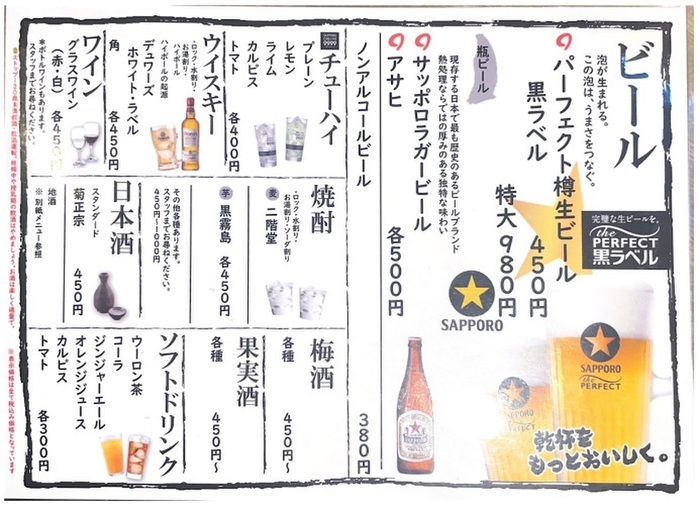 ビール
泡が生まれる。
この泡は、うまさをつなぐ。
パーフェクト樽生ビール
黒ラベル
450円
特大 980円
完璧な生ビールを。
the PERFECT
黒ラベル
SAPPORO
SAPPORO
the PERFECT
乾杯を
もっとおいしく。
瓶ビール
現存する日本で最も歴史のあるビールブランド
熱処理ならではの厚みのある独特な味わい
サッポロラガービール
アサヒ
各500円
ノンアルコールビール 380円
チューハイ
プレーン
レモン
ライム
カルピス
トマト
各400円
ウイスキー
・ロック・水割り・
お湯割り・ハイボール
ハイボールの起源
デュワーズ
ホワイト・ラベル
角
各450円
ワイン
グラスワイン
(赤・白) 各450円
*ボトルワインもあります。
スタッフまでお尋ねください。
焼酎
・ロック・水割り・
お湯割り・ソーダ割り
麦 二階堂
芋 黒霧島 各450円
その他各種あります。
スタッフまでお尋ねください。
450円〜1000円
日本酒
スタンダード
菊正宗 450円
地酒
※ 別紙メニュー参照
梅酒
各種 450円〜
果実酒
各種 450円〜
ソフトドリンク
ウーロン茶
コーラ
ジンジャーエール
オレンジジュース
カルピス
トマト 各300円
※表示価格は全て税込み価格となっています